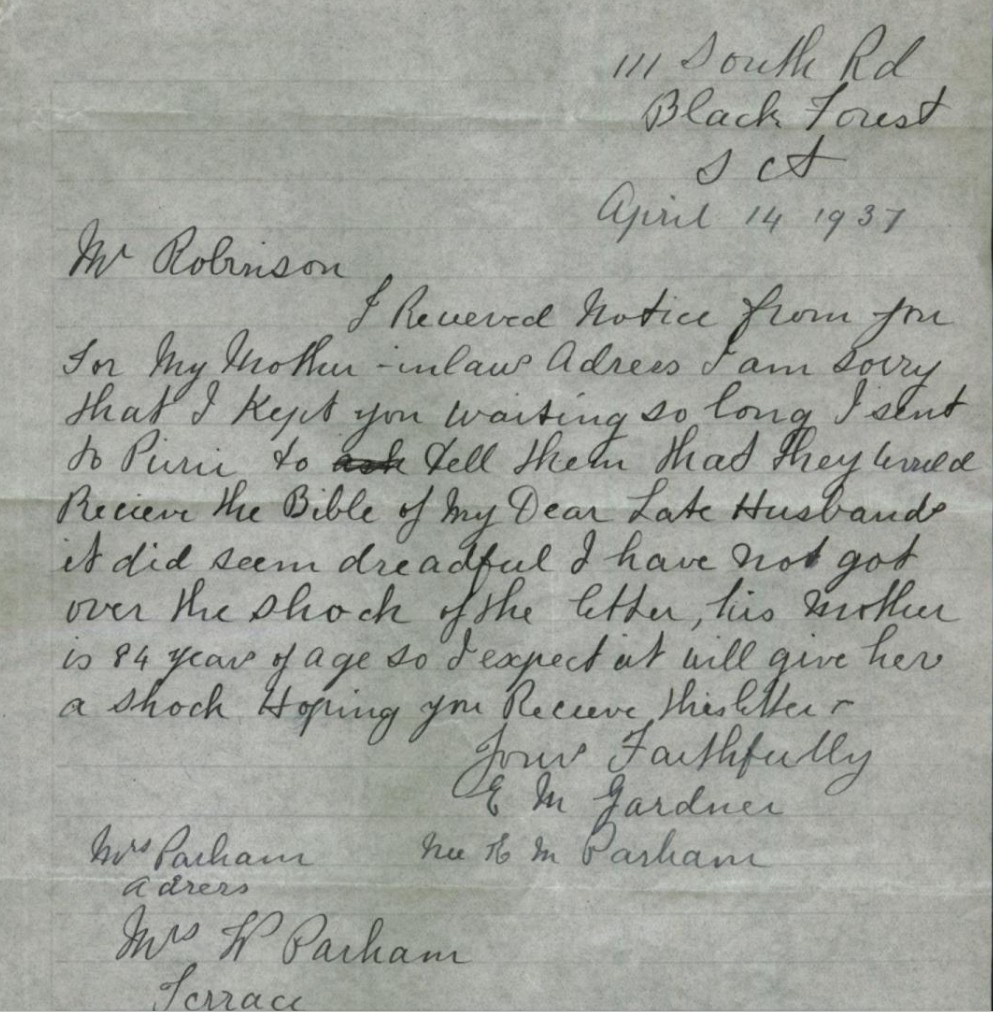 111 South Rd
Black Forest
S A
April 14 1937
Mr Robinson
I Recieved Notice from you
For My Mother-inlaws Adrees I am sorry
that I Kept you waiting so long I sent
to Pirie to ask tell them that they would
Recieve the Bible of My Dear Late Husbands
it did seem dreadful I have not got
over the shock of the letter, his Mother
is 84 years of age so I expect it will give her
a shock Hoping you Recieve this letter
Yours Faithfully
E M Gardner
Mrs Parham nee E M Parham
adrers
Mrs W Parham
Terrace